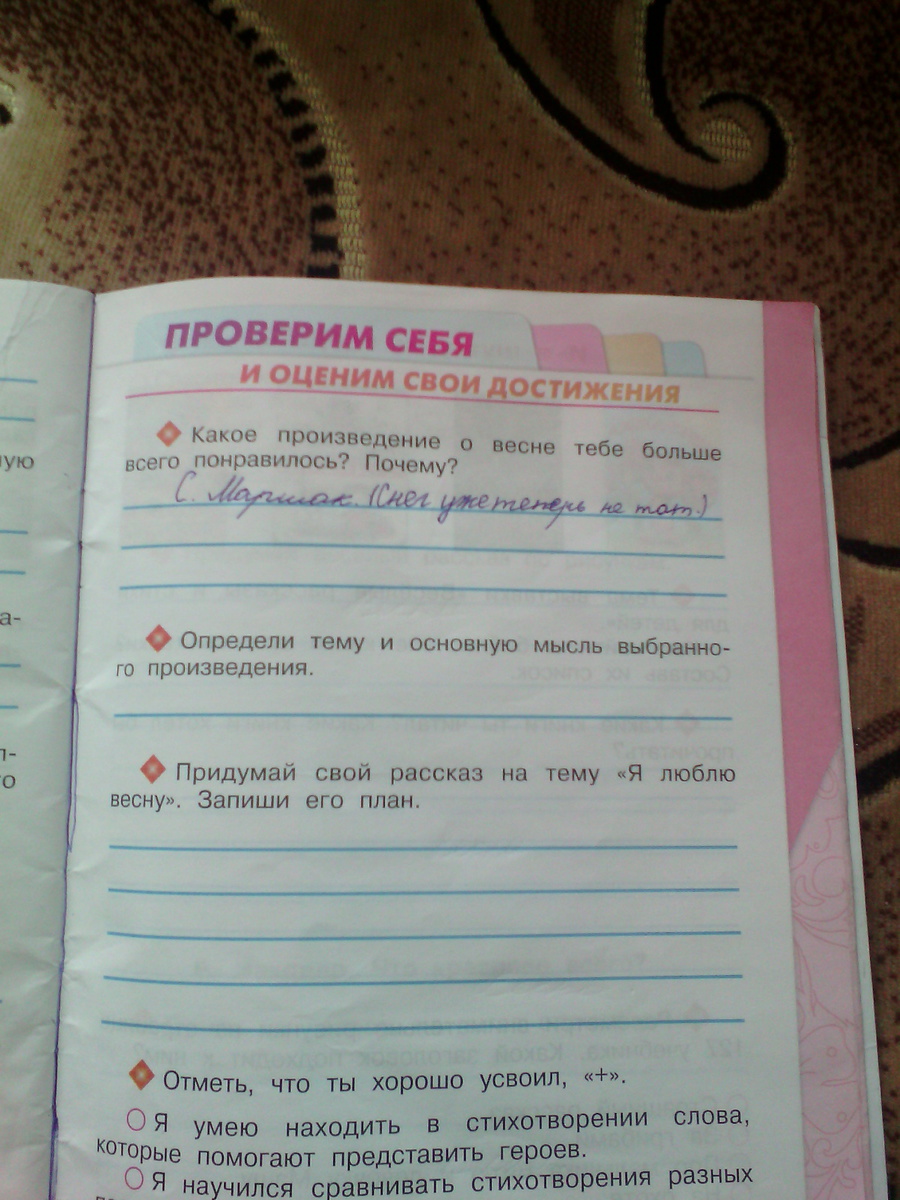 ПРОВЕРИМ СЕБЯ
И ОЦЕНИМ СВОИ ДОСТИЖЕНИЯ
Какое произведение о весне тебе больше
всего понравилось? Почему?
С. Маршак. (Снег уже теперь не тот.)
Определи тему и основную мысль выбранно-
го произведения.
Придумай свой рассказ на тему «Я люблю
весну». Запиши его план.
Отметь, что ты хорошо усвоил, «+».
Я умею находить в стихотворении слова,
которые помогают представить героев.
Я научился сравнивать стихотворения разных
ную
а-
л-
о